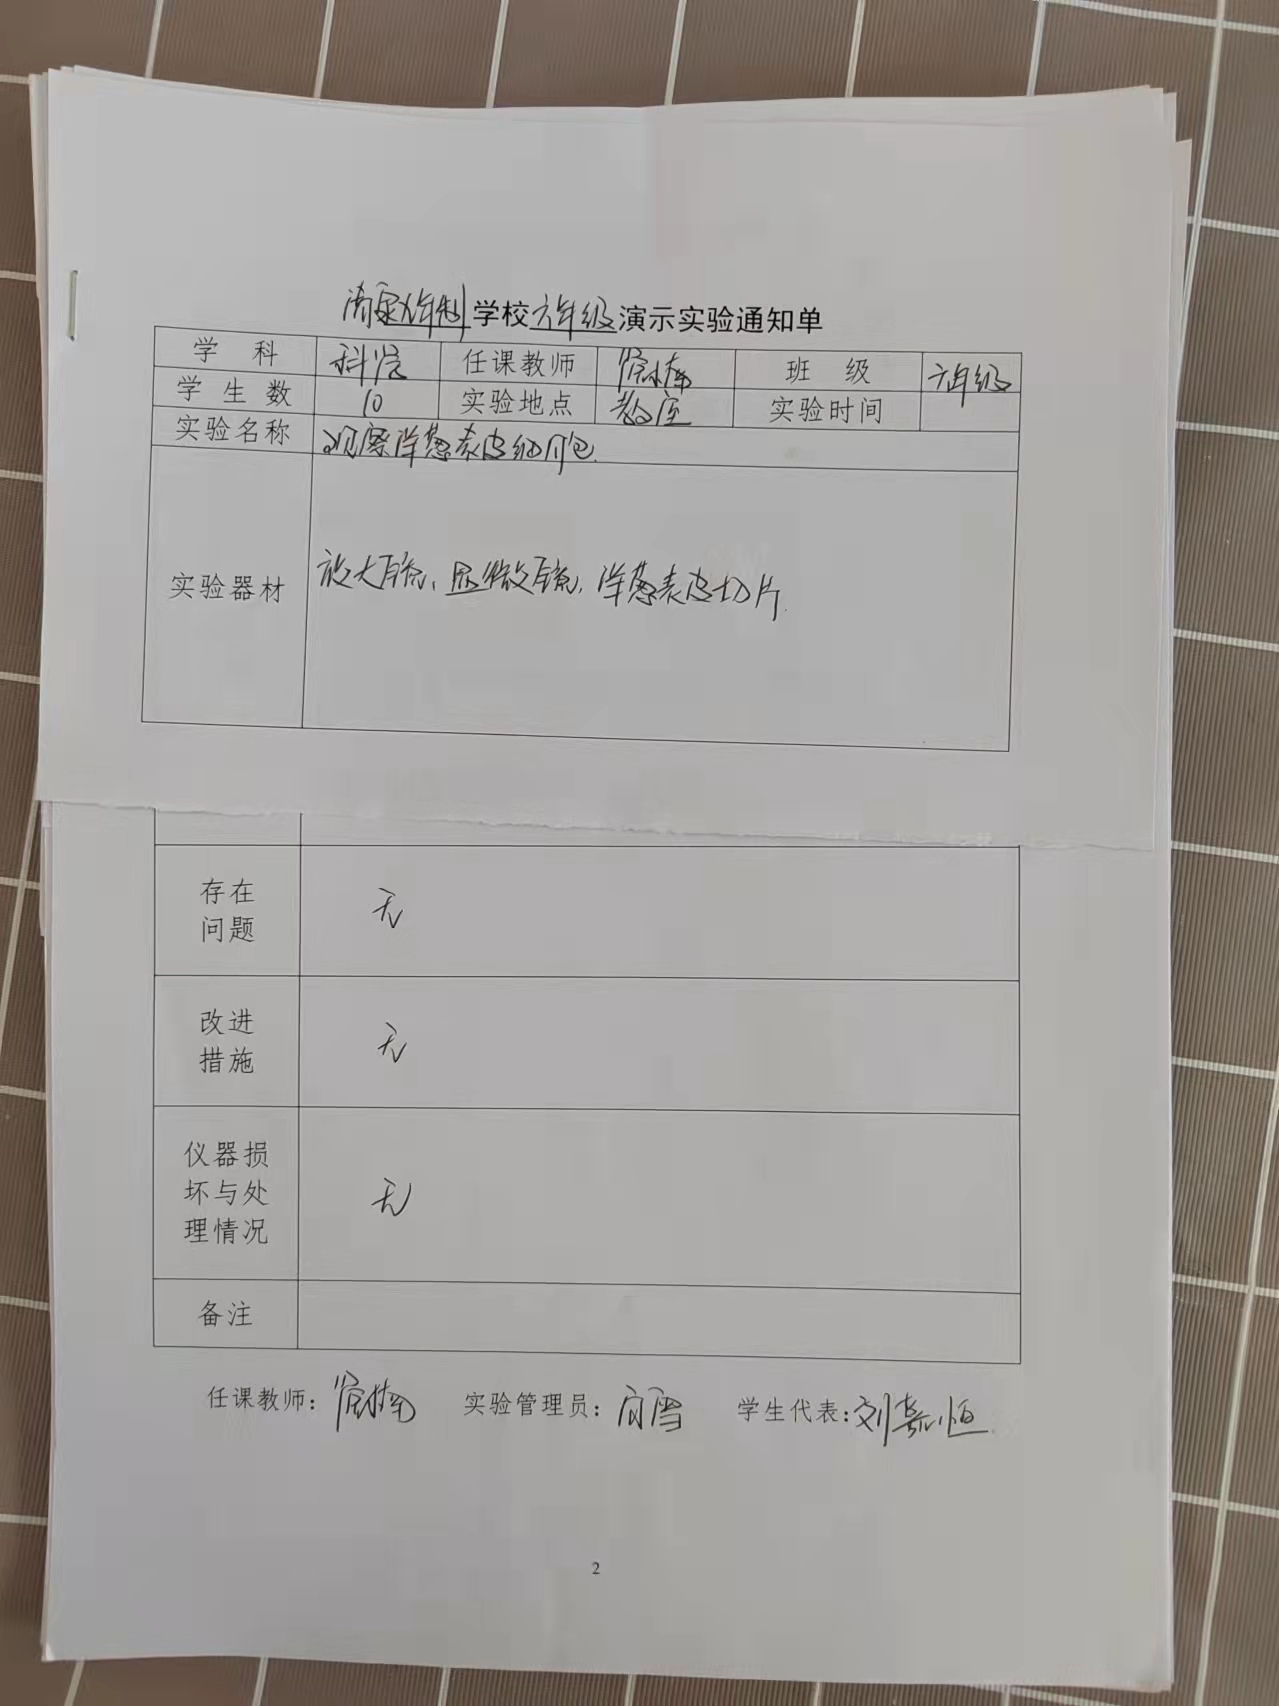 清泉九年制学校六年级演示实验通知单
学科 科学 任课教师 班级 六年级
学生数 10 实验地点 教室 实验时间
实验名称 观察洋葱表皮细胞.
实验器材 放大镜、显微镜,洋葱表皮切片.
存在问题 无
改进措施 无
仪器损坏与处理情况 无
备注
任课教师: 实验管理员: 学生代表:刘嘉恒
2